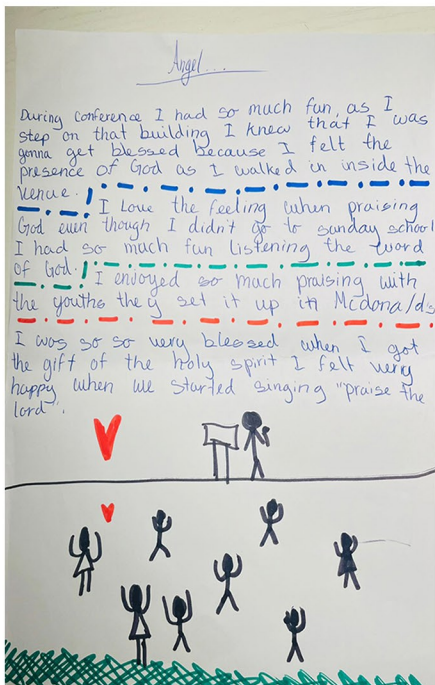 Angel....
During conference I had so much fun, as I
step on that building I knew that I was
gonna get blessed because I felt the
presence of God as I walked in inside the
venue.
I love the feeling when praising
God even though I didn't go to sunday school
I had so much fun listening the word
of God. I enjoyed so much praising with
the youths they set it up in Mcdonald's
I was so so very blessed when I got
the gift of the holy spirit I felt very
happy when we started singing "praise the
lord".